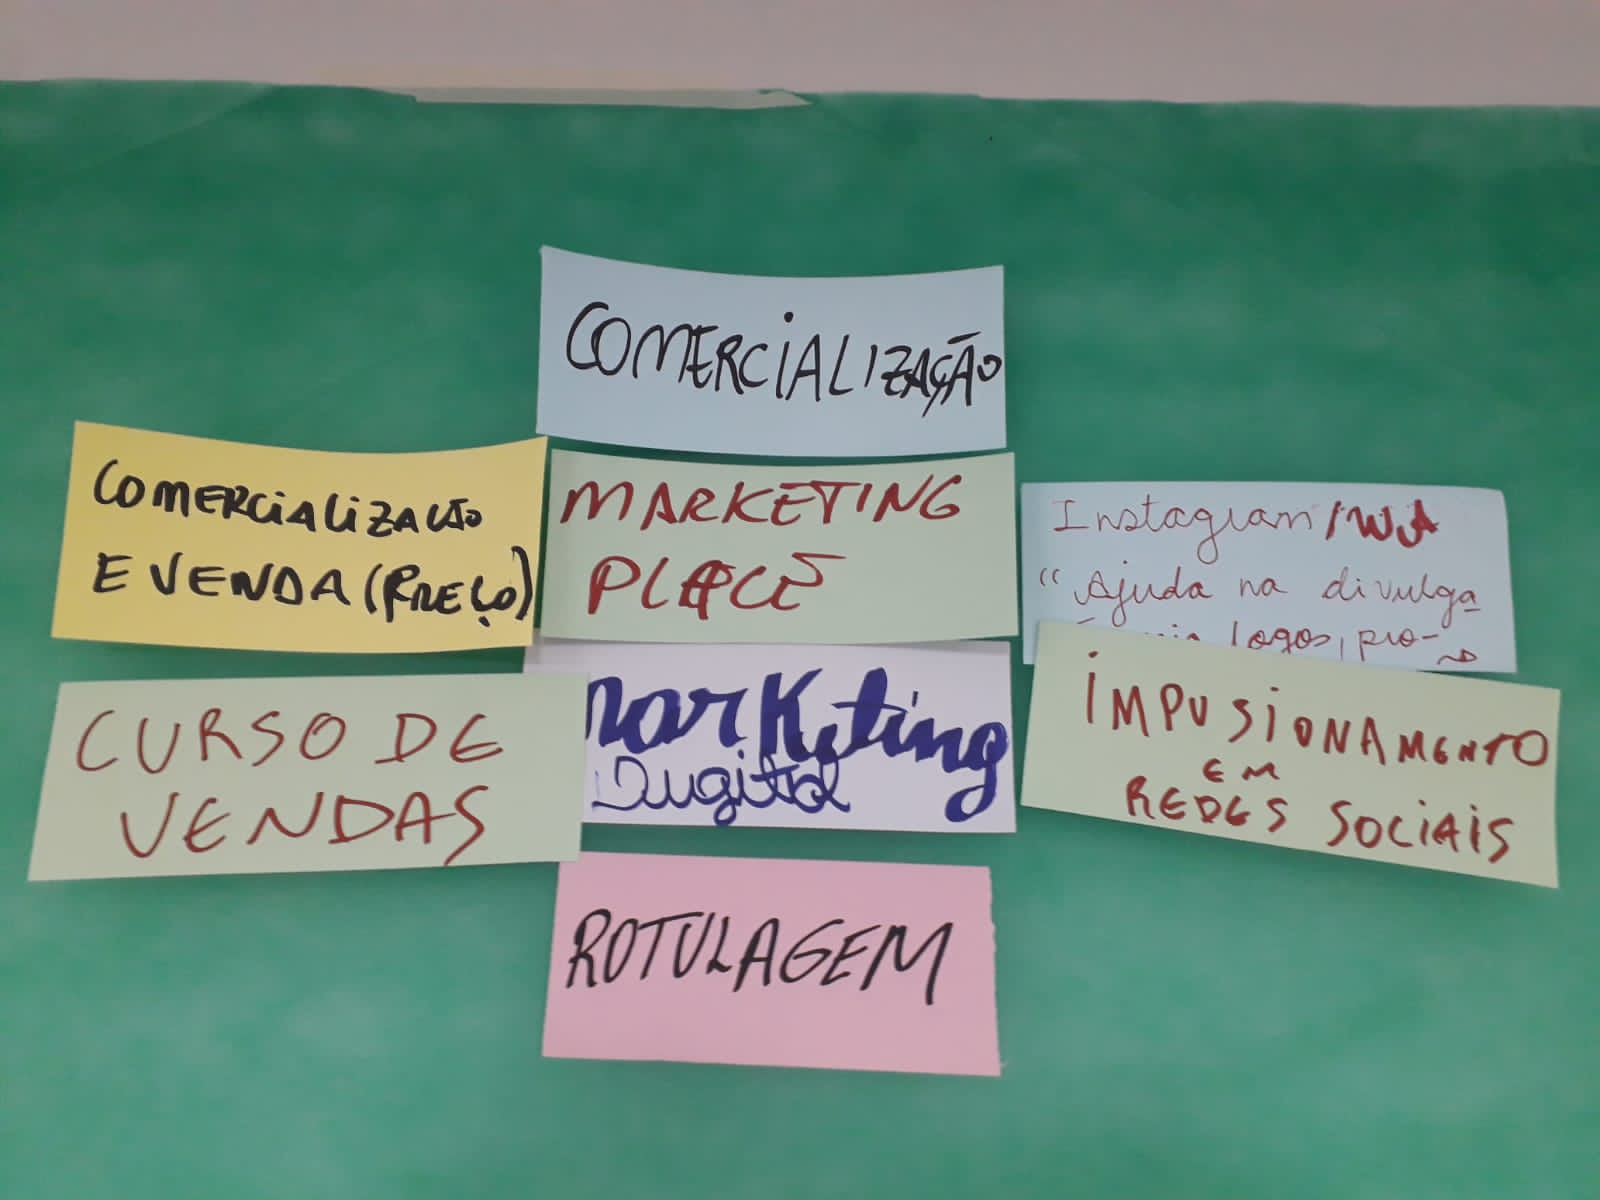 COMERCIALIZAÇÃO
COMERCIALIZAÇÃO
E VENDA (PREÇO)
MARKETING
PLACE
Instagram/WA
"Ajuda na divulga
logos, pro-
CURSO DE
VENDAS
Marketing
Digital
IMPUSIONAMENTO
EM
REDES SOCIAIS
ROTULAGEM